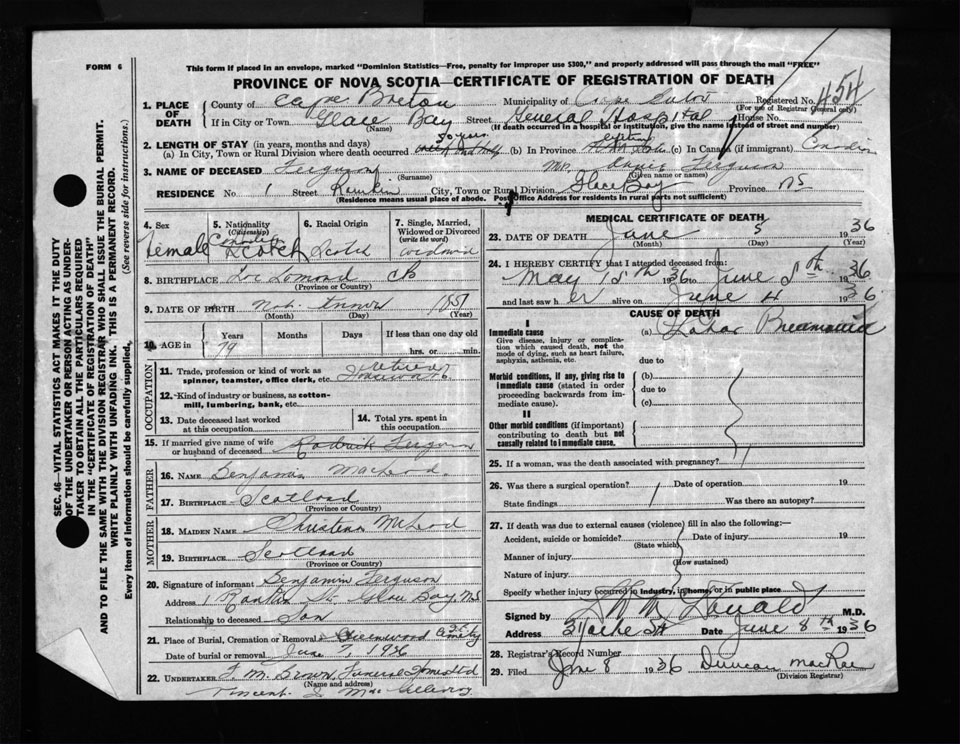 FORM 6
This form if placed in an envelope, marked "Dominion Statistics—Free, penalty for improper use $300," and properly addressed will pass through the mail "FREE"
PROVINCE OF NOVA SCOTIA—CERTIFICATE OF REGISTRATION OF DEATH
SEC. 46—VITAL STATISTICS ACT MAKES IT THE DUTY
OF THE UNDERTAKER OR PERSON ACTING AS UNDER-
TAKER TO OBTAIN ALL THE PARTICULARS REQUIRED
IN THE "CERTIFICATE OF REGISTRATION OF DEATH"
AND TO FILE THE SAME WITH THE DIVISION REGISTRAR WHO SHALL ISSUE THE BURIAL PERMIT.
WRITE PLAINLY WITH UNFADING INK. THIS IS A PERMANENT RECORD.
Every item of information should be carefully supplied. (See reverse side for instructions.)
1. PLACE OF DEATH County of Cape Breton Municipality of Cape Registered No. 454
(For use of Registrar General only)
If in City or Town Glace Bay Street General Hospital House No.
(Name) (If death occurred in a hospital or institution, give the name instead of street and number)
2. LENGTH OF STAY (in years, months and days)
(a) In City, Town or Rural Division where death occurred 50 years (b) In Province lifetime (c) In Canada (if immigrant) Canadian
3. NAME OF DECEASED Ferguson Mrs. Annie Ferguson
(Surname) (Given name or names)
RESIDENCE No. 1 Street Rankin City, Town or Rural Division Glace Bay Province NS
(Residence means usual place of abode. Post Office Address for residents in rural parts not sufficient)
4. Sex Female
5. Nationality (Citizenship) Canadian Scotch
6. Racial Origin Scotch
7. Single, Married, Widowed or Divorced (write the word) widowed
8. BIRTHPLACE Loc Lomond CB
(Province or Country)
9. DATE OF BIRTH Not known 1857
(Month) (Day) (Year)
10. AGE in Years 79 Months Days If less than one day old
hrs. or min.
OCCUPATION
11. Trade, profession or kind of work as
spinner, teamster, office clerk, etc. retired Housework
12. Kind of industry or business, as cotton-
mill, lumbering, bank, etc.
13. Date deceased last worked
at this occupation
14. Total yrs. spent in
this occupation
15. If married give name of wife
or husband of deceased Rodrick Ferguson
FATHER
16. NAME Benjamin MacLeod
17. BIRTHPLACE Scotland
(Province or Country)
MOTHER
18. MAIDEN NAME Christian McLeod
19. BIRTHPLACE Scotland
(Province or Country)
20. Signature of informant Benjamin Ferguson
Address 1 Rankin St. Glace Bay, N.S.
Relationship to deceased Son
21. Place of Burial, Cremation or Removal Greenwood
Date of burial or removal June 7, 1936
22. UNDERTAKER F. M. Brown, Funeral
(Name and address)
Vincent
MEDICAL CERTIFICATE OF DEATH
23. DATE OF DEATH June 5 1936
(Month) (Day) (Year)
24. I HEREBY CERTIFY that I attended deceased from:
May 15th 1936 to June 5th 1936
and last saw her alive on June 4 1936
CAUSE OF DEATH
I
Immediate cause (a) Lobar Pneumonia
Give disease, injury or complica-
tion which caused death, not the
mode of dying, such as heart failure,
asphyxia, asthenia, etc. due to
Morbid conditions, if any, giving rise to (b)
immediate cause (stated in order due to
proceeding backwards from im-
mediate cause). (c)
II
Other morbid conditions (if important)
contributing to death but not
causally related to immediate cause.
25. If a woman, was the death associated with pregnancy?
26. Was there a surgical operation? Date of operation 19
State findings Was there an autopsy?
27. If death was due to external causes (violence) fill in also the following:—
Accident, suicide or homicide? Date of injury 19
(State which)
Manner of injury
(How sustained)
Nature of injury
Specify whether injury occurred in industry, in home, or in public place
Signed by M.D.
Address Date June 8th 1936
28. Registrar's Record Number
29. Filed June 8 1936 Duncan MacRae
(Division Registrar)